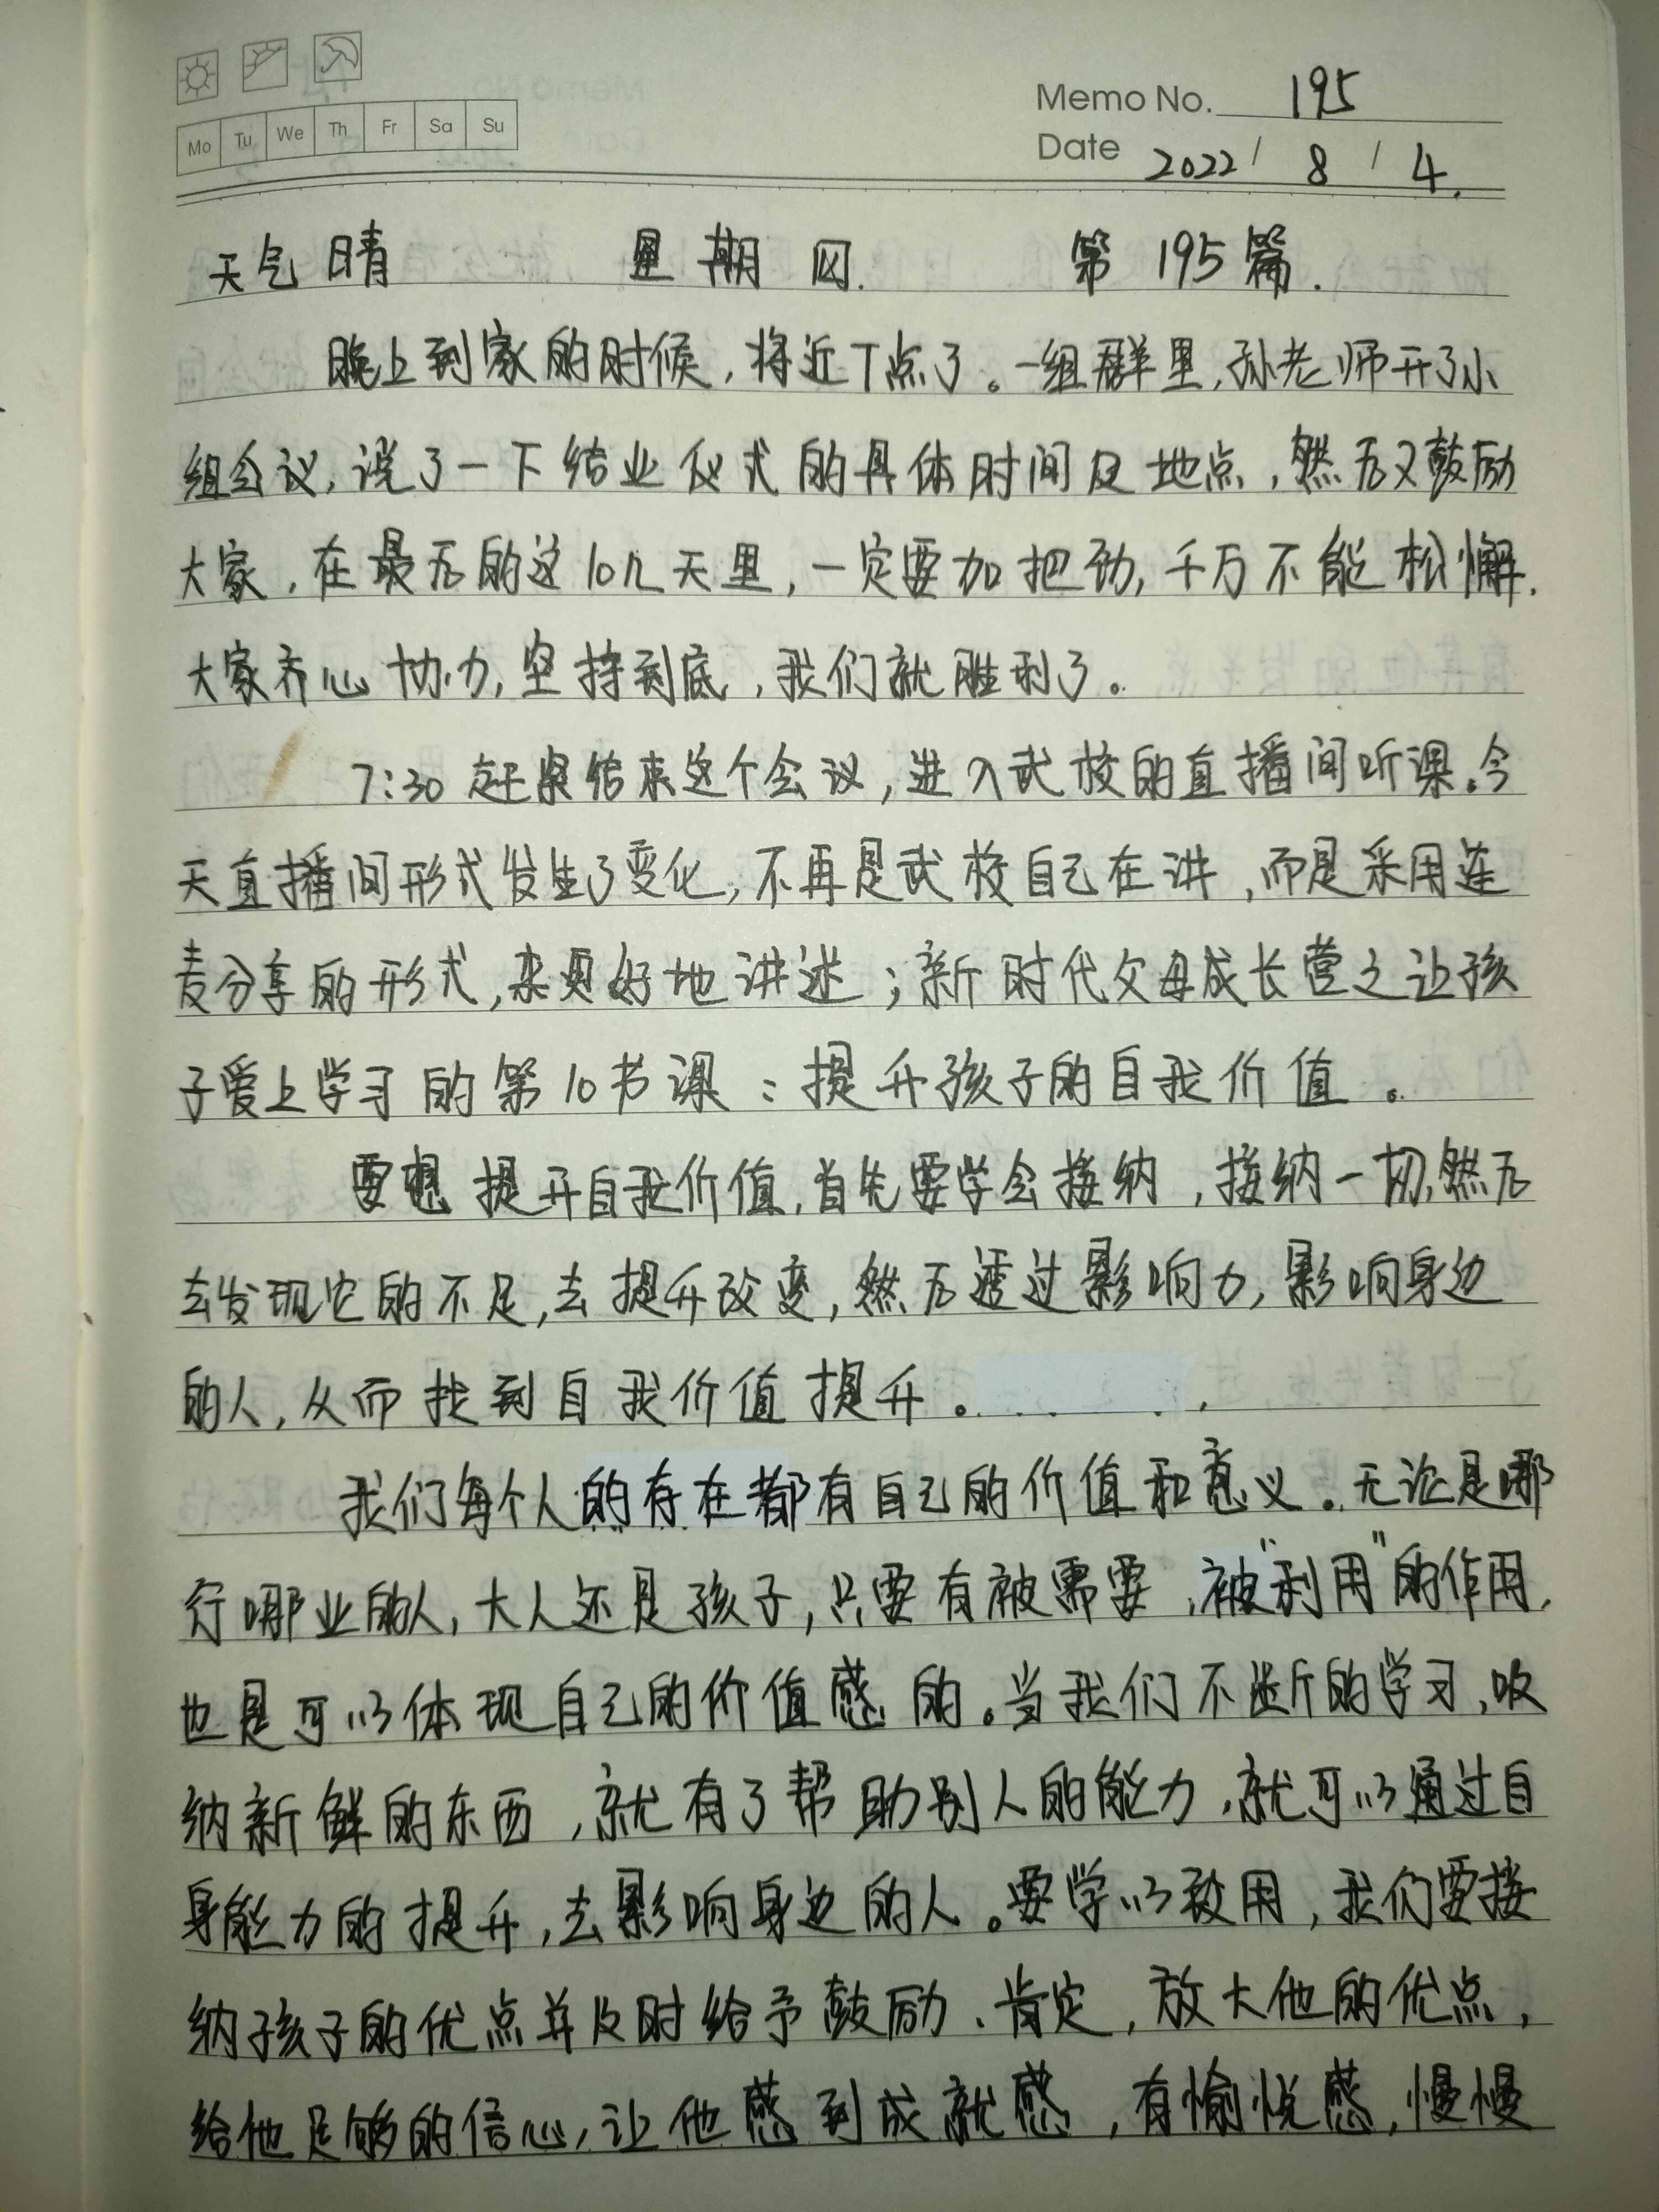 Memo No. 195
Mo Tu We Th Fr Sa Su
Date 2022 / 8 / 4.
天气晴 星期四. 第195篇.
晚上到家的时候,将近7点了。一组群里,孙老师开了小
组会议,说了一下结业仪式的具体时间及地点,然后又鼓励
大家,在最后的这10几天里,一定要加把劲,千万不能松懈.
大家齐心协力,坚持到底,我们就胜利了。
7:30赶紧结束这个会议,进入武校的直播间听课。今
天直播间形式发生了变化,不再是武校自己在讲,而是采用连
麦分享的形式,来更好地讲述;新时代父母成长营之让孩
子爱上学习的第10节课:提升孩子的自我价值。
要想提升自我价值,首先要学会接纳,接纳一切,然后
去发现它的不足,去提升改变,然后透过影响力,影响身边
的人,从而找到自我价值提升。
我们每个人的存在都有自己的价值和意义。无论是哪
行哪业的人,大人还是孩子,只要有被需要,被"利用"的作用,
也是可以体现自己的价值感的。当我们不断的学习,吸
纳新鲜的东西,就有了帮助别人的能力,就可以通过自
身能力的提升,去影响身边的人。要学以致用,我们要接
纳孩子的优点并及时给予鼓励、肯定,放大他的优点,
给他足够的信心,让他感到成就感,有愉悦感,慢慢